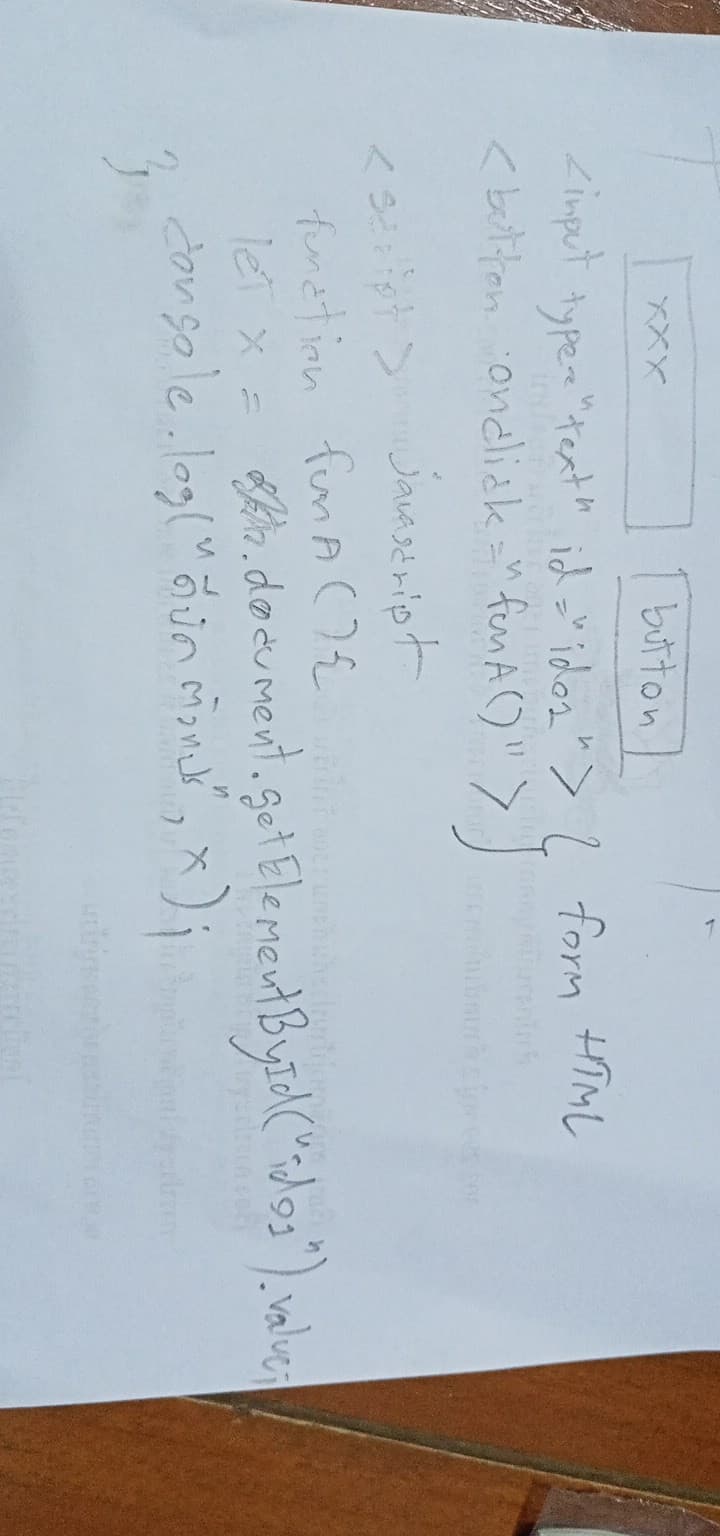 xxx button
<input type="text" id="id01"> } form HTML
<button onclick="funA()">
<script> javascript
function funA(){
let x = .document.getElementById("id01").value;
console.log(" ", x);
}